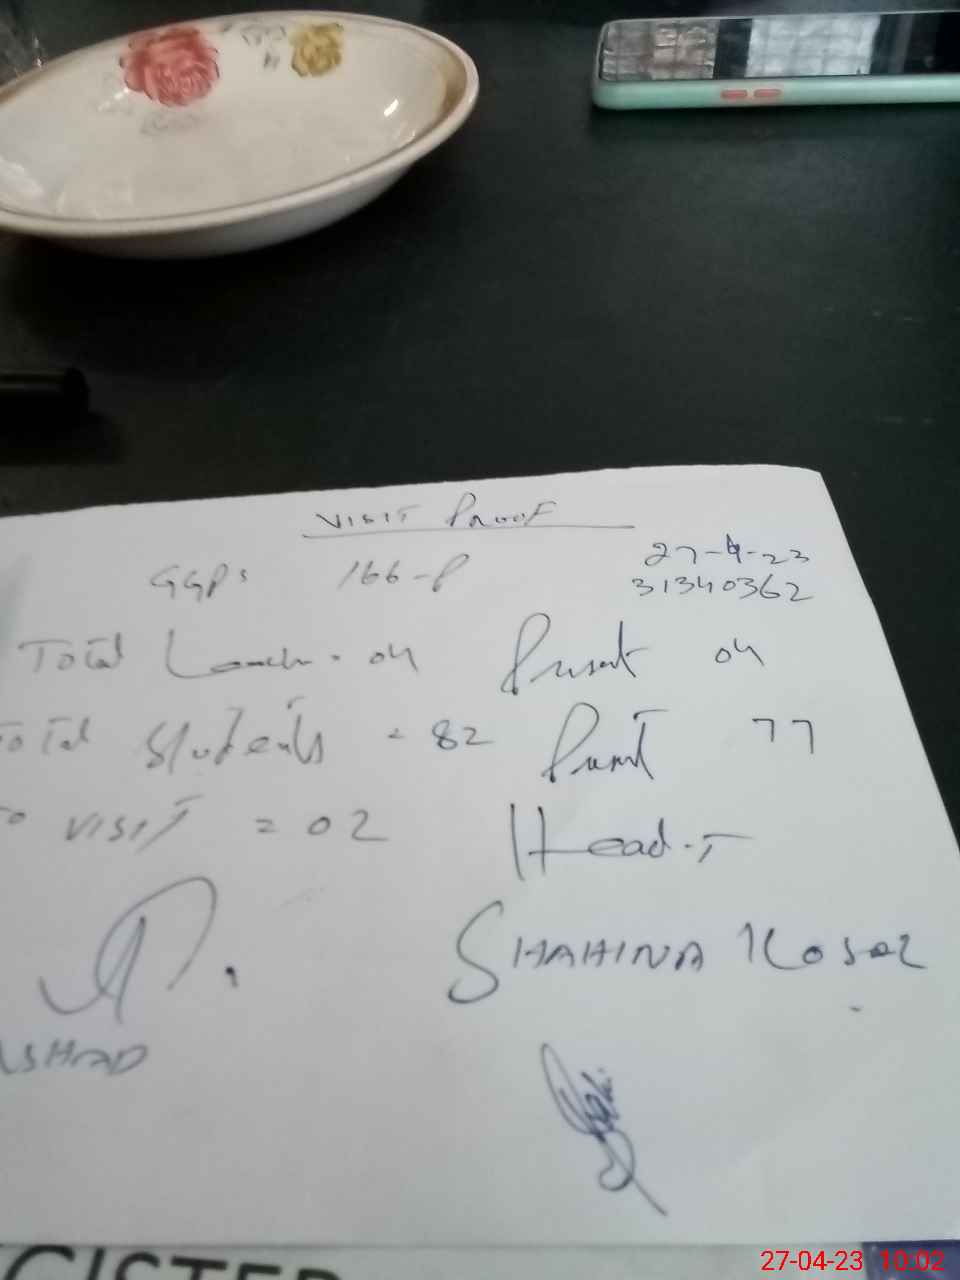 VISIT PROOF
GGPS 166-P 27-4-23
31340362
Total 04 Present 04
Total Students = 82 Present 77
VISIT = 02 Head-T
SHAHINA Kosar
ASHAD
GISTER
27-04-23 10:02